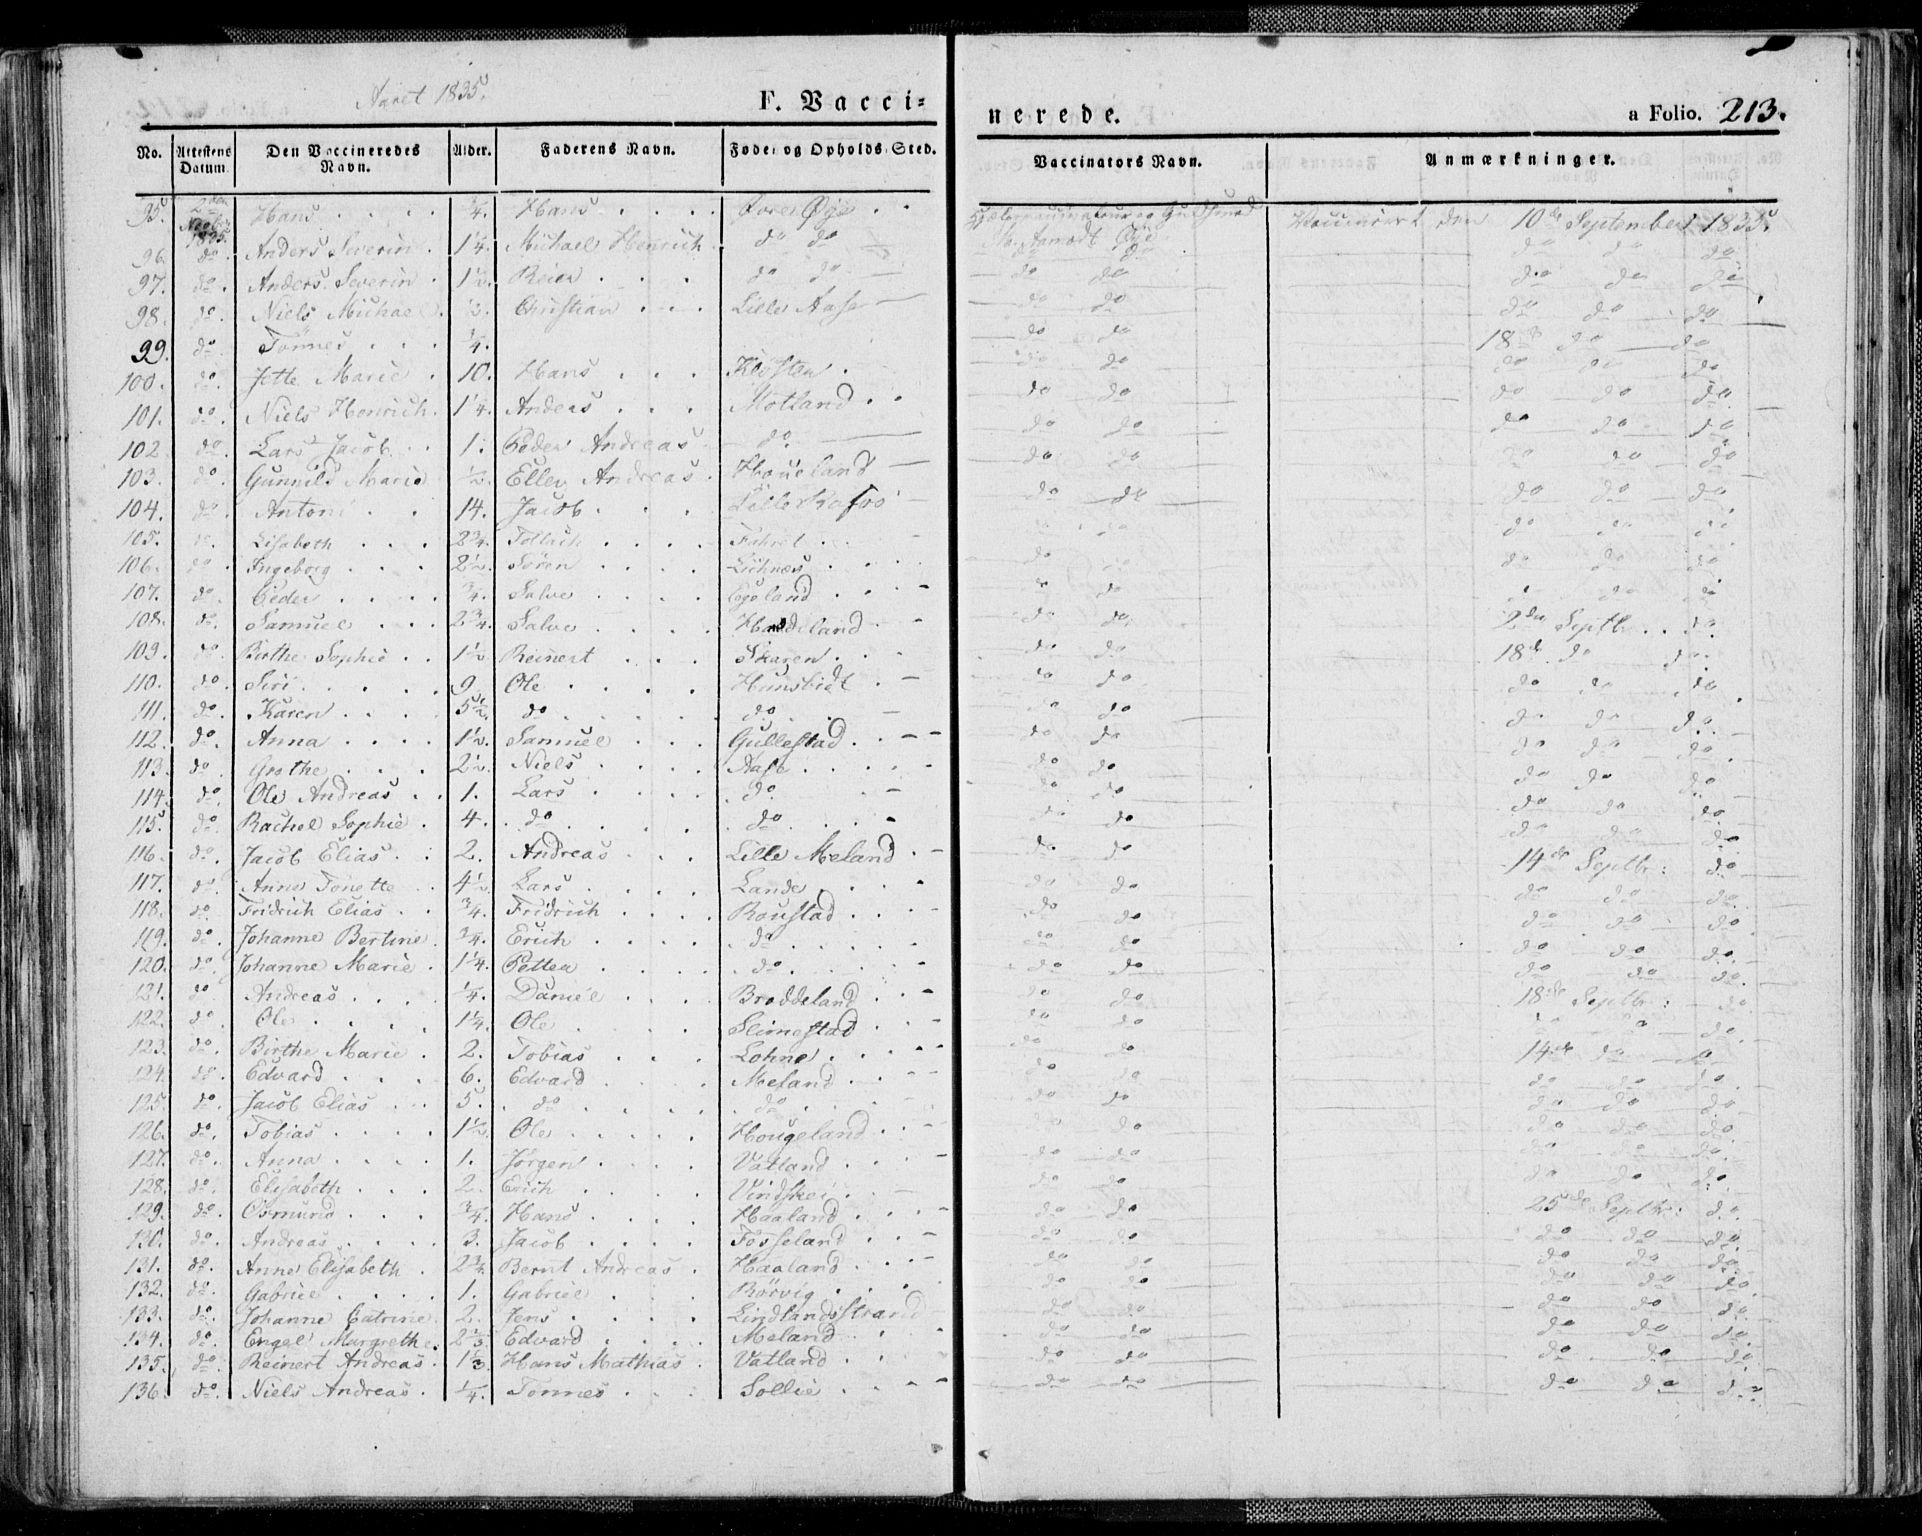 Aaret 1835.
F. Vacci-
nerede.
a Folio. 213.
No. Attestens Datum. Den Vaccineredes Navn. Alder. Faderens Navn. Føde- og Opholds-Sted. Vaccinators Navn. Anmærkninger.
95. 2den 1835. Hans 3/4. Hans Øye Vaccineret den 10de September 1835.
96. do. Anders Severin. 1 1/4. Michael Henrich do do do do do do
97. do. Anders Severin. 1 1/2. Reier do do do do do do do
98. do. Niels Michael. 1/2. Christian Lille Aase do do do do do
99. do Tönnes 3/4. do do 18de do do
100. do. Jette Marie 10. Hans do do do do do
101. do. Niels Henrich. 1 1/4. Andeas Motland do do do do do
102 do. Lars Jacob 1. Peder Andreas do do do do do do
103. do. Gunnild Marie 1/2. Ellev Andreas Houeland do do do do do
104. do. Antoni 14. Jacob do do do do do
105. Lisabeth 2 3/4. Tollach do
106. do. Ingeborg 2 1/2. Sören do do do do
107. do. Peder 3/4. Salve do do do
108. do. Samuel 2 3/4. Salve do do 2den Septb. do.
109. do. Birthe Sophie 1 1/2 Reinert Skaren do do 18de do do.
110. do. Siri 9. Ole do do do do do
111. do. Karen 5 1/2. do do. do do do do.
112. do. Anna 1 1/2. Samuel Gullestad. do do do do do.
113. do Grethe 2 1/2. Niels Aase do do do do do
114. do. Ole Andreas 1. Lars do. do do do do do.
115. do. Rachel Sophie 4. do do. do do do do do
116. do. Jacob Elias. 2. Andreas Lille Meland do do 14de Septbr: do
117. do. Anne Tonette 4 1/2. Lars Lande do do do do do.
118. do. Fridrich Elias 3/4. Fridrich Roustad do do do do do.
119. do. Johanne Bertine 3/4. Erich do do do do do do.
120. do. Johanne Marie 1 1/4. Petter do. do do do do do.
121. do Andreas 1/4. Daniel Broddeland do do 18de Septbr: do
122. do. Ole 1 1/4. Ole Slimestad do do do.
123. do. Birthe Marie 2. Tobias Lohne do do 14de do do
124. do. Edvard 6. Edvard Meland do do do do do.
125. do. Jacob Elias 5. do do. do do do do do
126. do. Tobias 1 1/2. Ole Hougeland do do do do do.
127. do. Anna 1. Jörgen Vatland do do do do do
128. do. Elisabeth 2. Erich do do do do do.
129. do. Osmund 3/4. Hans Haaland do do 25de Septbr: do.
130. do. Andreas 3. Jacob Fosseland do do do do do.
131. do. Anne Elisabeth 2 3/4. Bernt Andreas Haaland do do do do do.
132. do. Gabriel 1. Gabriel Rörvig do do do do do.
133. do. Johanne Catrine 2. Jens Lindlandsstrand do do do do do.
134. do. Engel Margrethe. 2 1/3. Edvard Meland do do do do do.
135. do. Reinert Andreas. 1 1/3. Hans Mathias Vatland do do do do do.
136. do. Niels Andreas. 1/4. Tönnes Sollie do do do do do.